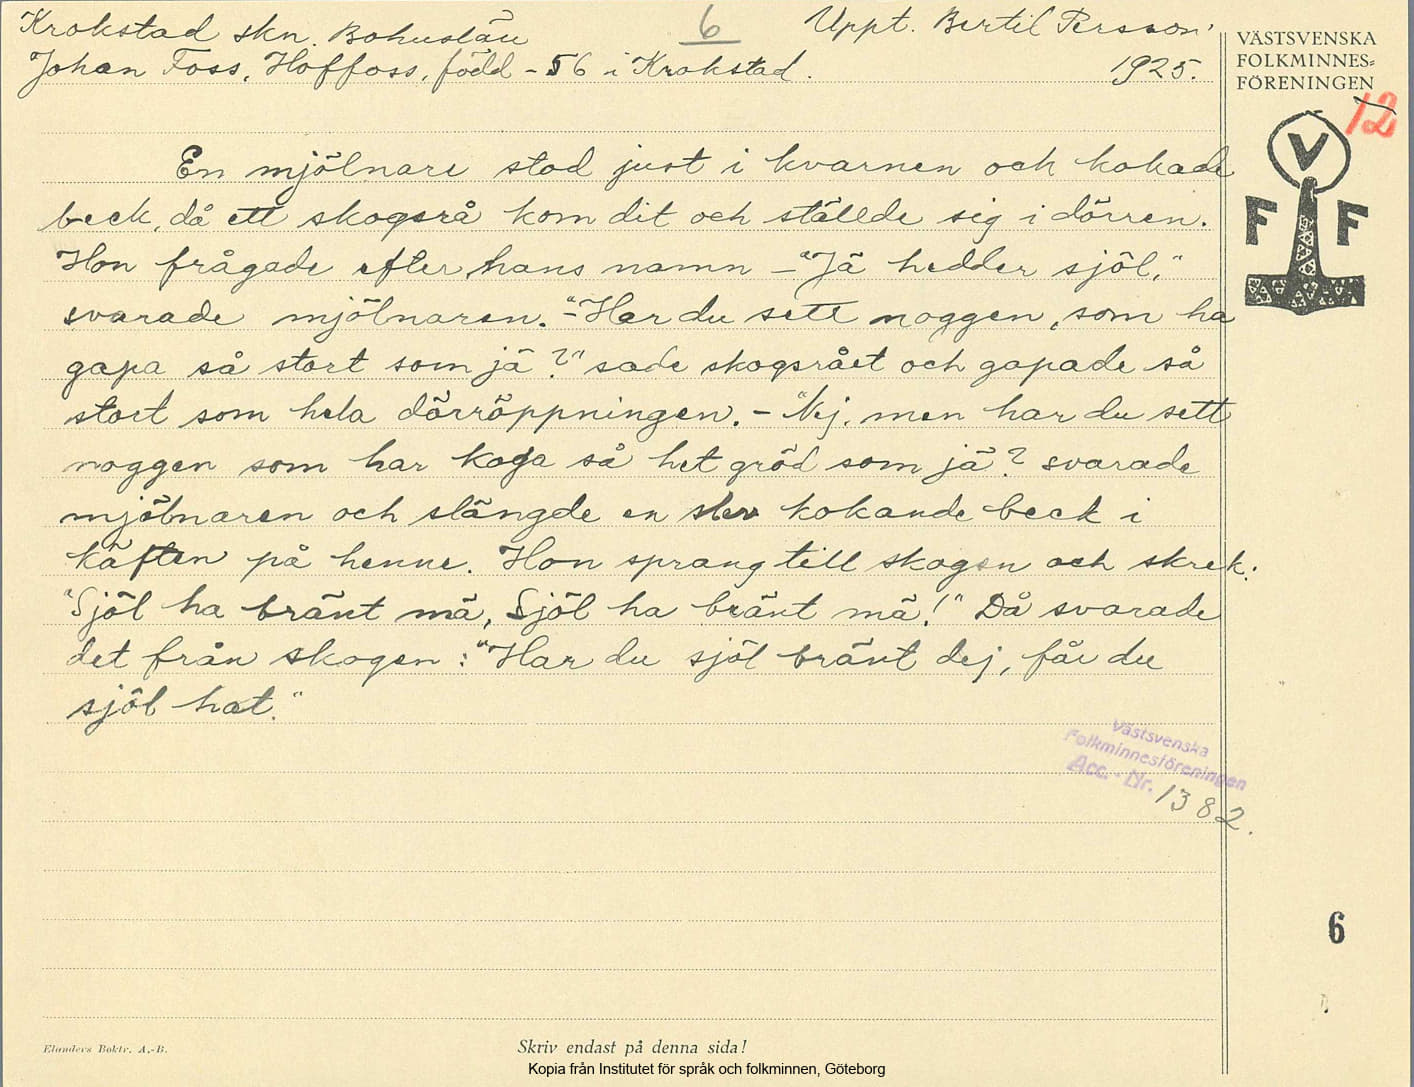 Krokstad skn. Bohuslän
6
Uppt. Bertil Persson
Johan Foss, Hoffoss, född -56 i Krokstad.
1925.
VÄSTSVENSKA
FOLKMINNES-
FÖRENINGEN
12
V
F F
En mjölnare stod just i kvarnen och kokade
beck, då ett skogsrå kom dit och ställde sig i dörren.
Hon frågade efter hans namn – "Jä hedder sjöl,"
svarade mjölnaren. – "Har du sett noggen, som ha
gapa så stort som jä?" sade skogsrået och gapade så
stort som hela dörröppningen. – "Nej, men har du sett
noggen som har koga så het gröd som jä? svarade
mjölnaren och slängde en slev kokande beck i
käften på henne. Hon sprang till skogen och skrek:
"Sjöl ha bränt mä, Sjöl ha bränt mä!" Då svarade
det från skogen: "Har du sjöl bränt dej, får du
sjöl hat."
Västsvenska
Folkminnesföreningen
Acc. - Nr. 1382.
6
Elanders Boktr. A.-B.
Skriv endast på denna sida!
Kopia från Institutet för språk och folkminnen, Göteborg